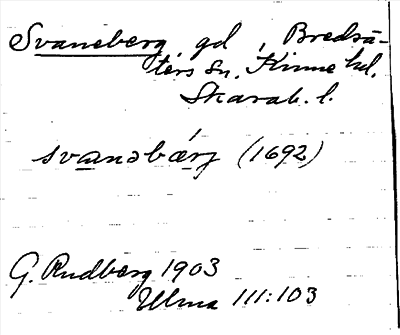 Svaneberg, gd, Bredsä-
ters sn. Kinne hd.
Skarab. l.
svanəbærj (1692)
G. Rudberg 1903
Ulma 111:103